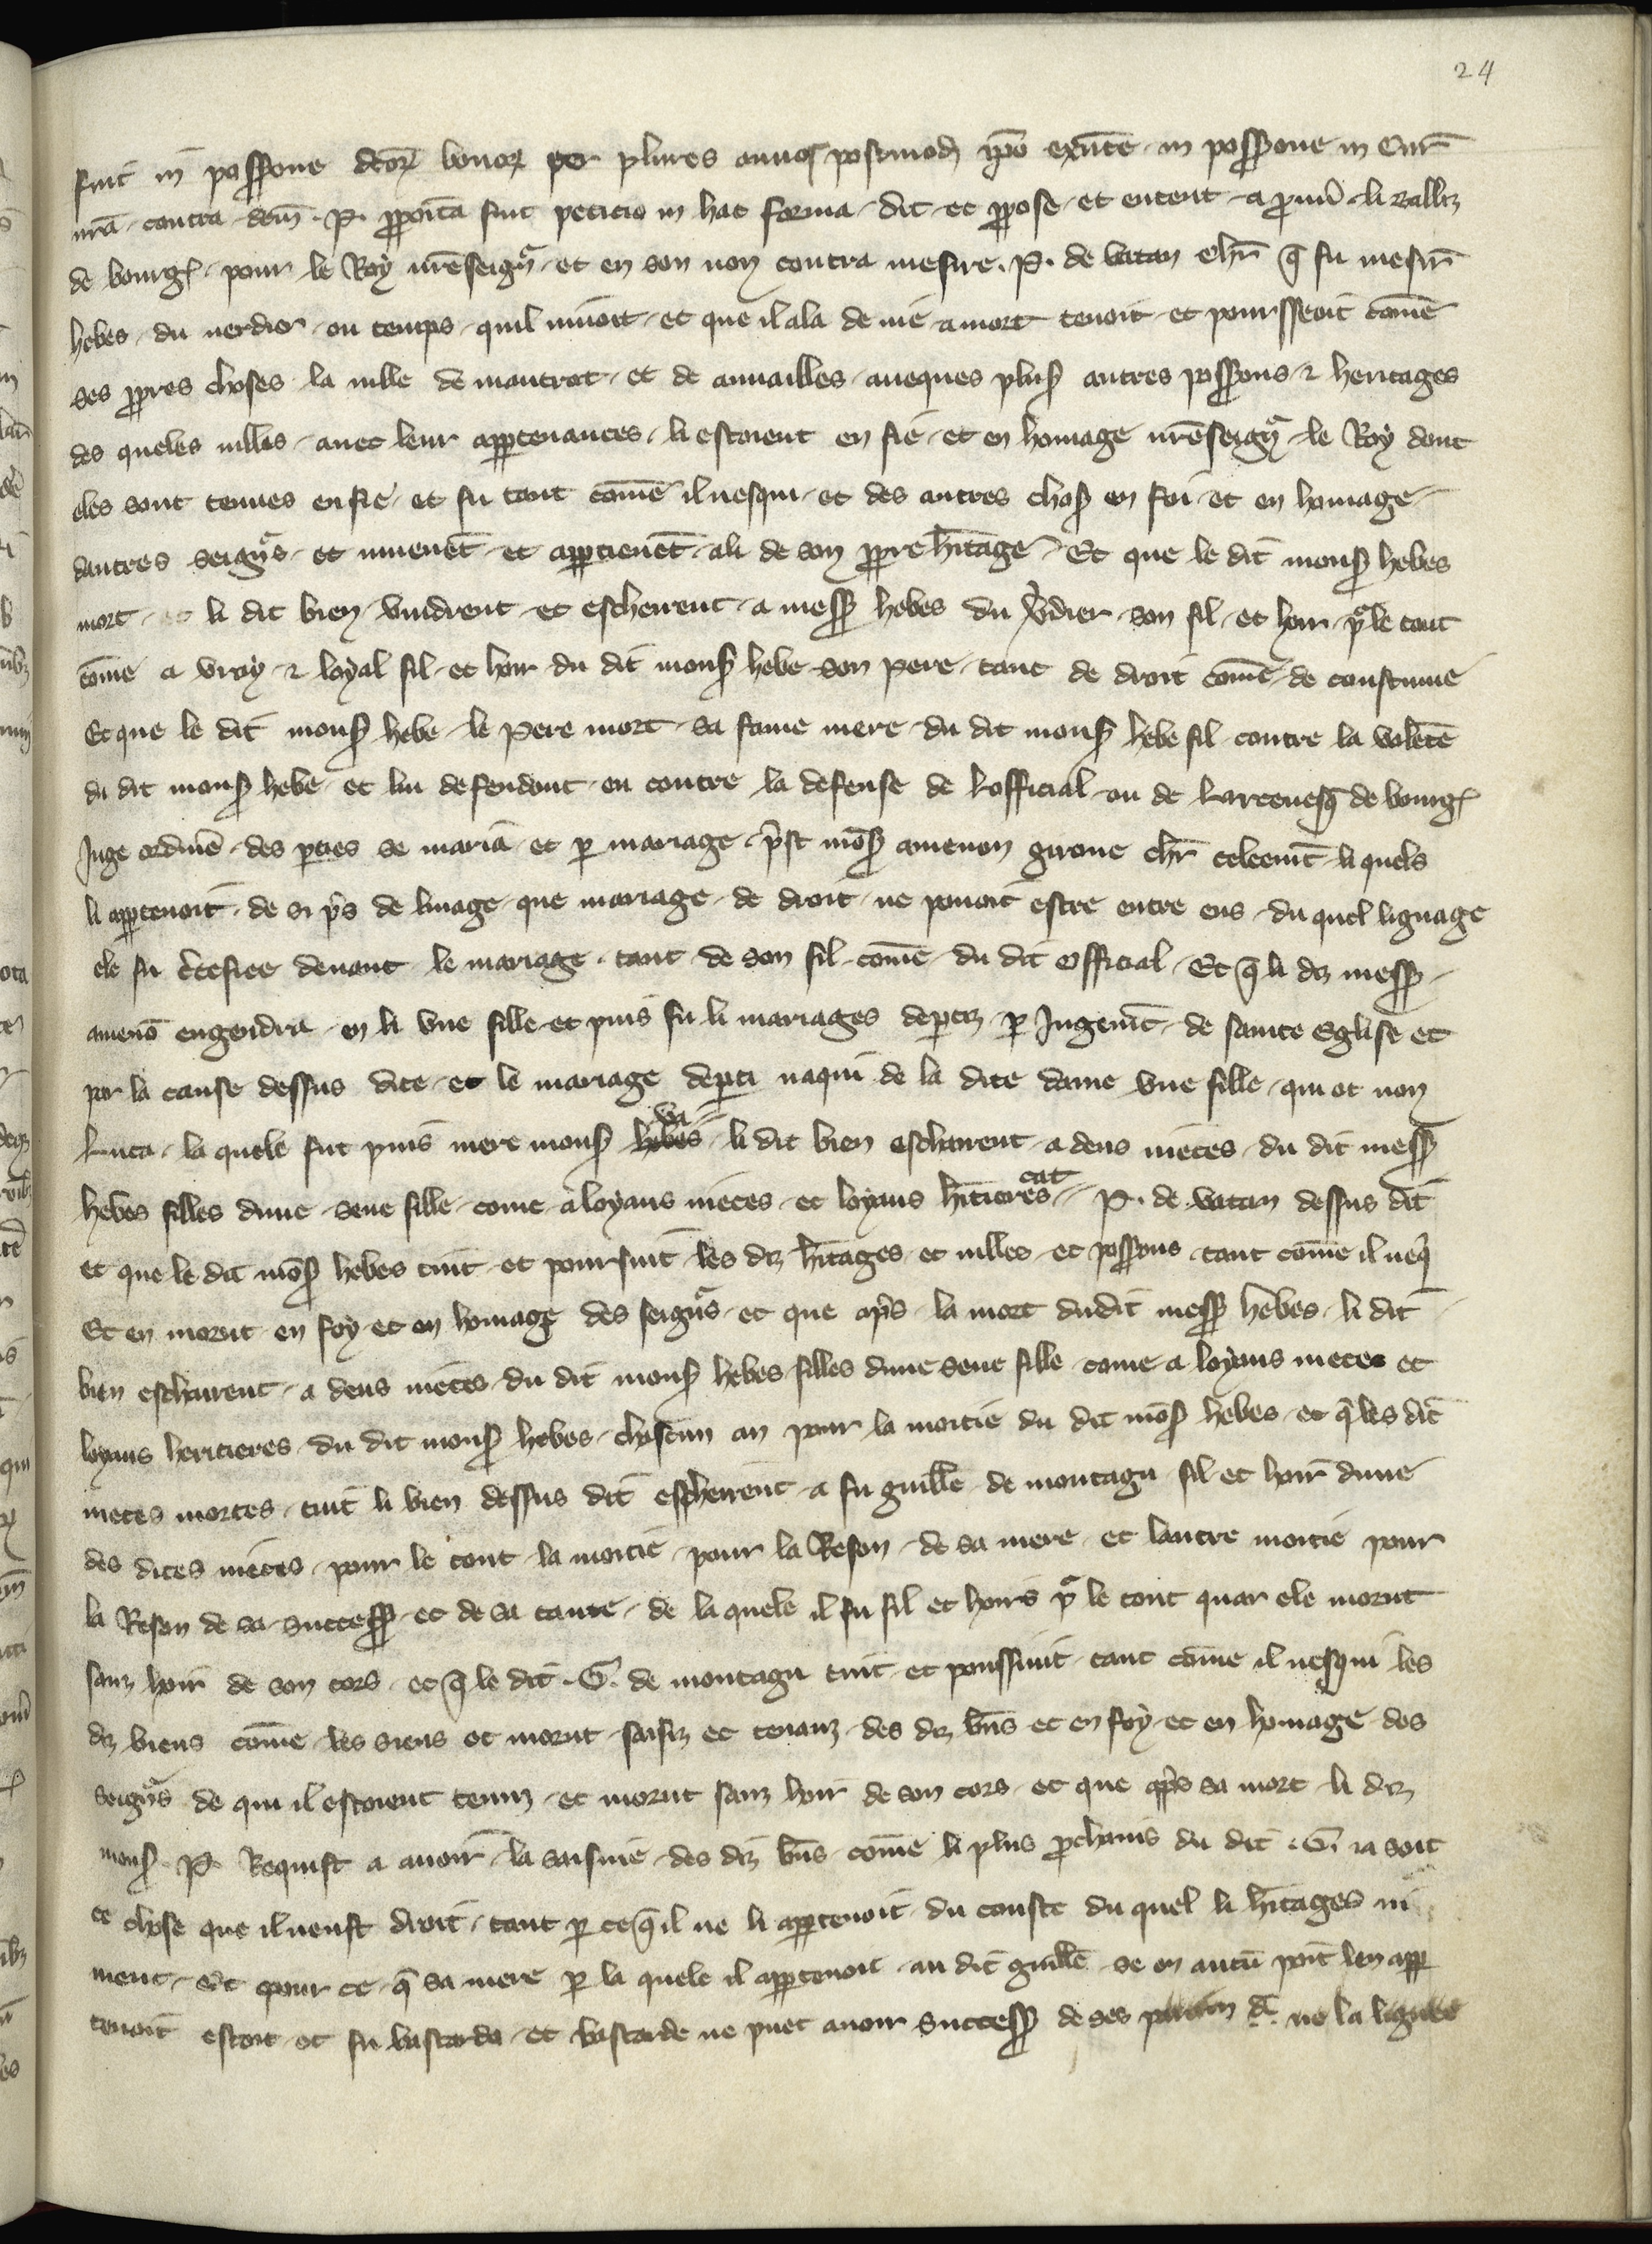 24
fuit in possone dcorz bonorz per plures annos postmod ipo exnte in possone in Cur
nra contra dcm .P. ppoita fuit peticio in hac forma dit et ppose et entent a prouu li Ballız
de bourgs pour le Roy nreseignr et en son non contra mesire .P. de vatan chr q fu mesire
hebes du verdier ou temps quil viuoit et que il ala de vie a mort tenoit et poursseoit come
ses ppres choses la ville de mautrot et de annailles aueques plus autres possons 2 heritages
des queles villes auec leur appartenances li estoient en fie et en homage nreseignr le Roy dont
eles sont tenues en fie et fu tant come il uesqui et des autres chos en foi et en homage
dautres seignrs et muuenet et apptienet a li de son ppre hitage Et que le dit mons hebes
mort et li dit bien vindrent et escheirent a mess hebes du vdier son fil et hoir pr le tout
come a vray 2 loyal fil et hoir du dit mons hebe son pere tant de droit come de coustume
Et que le dit mons hebe le pere mort sa fame mere du dit mons hebe fil contre la volete
du dit mons hebe et lui defendent en contre la defense de Lofficial ou de Larceuesq de bourgs
Juge ordine des pties se maria et p mariage prist mos amenon girone chr celeemt li quels
li apptenoit de si ps de linage que mariage de droit ne pouoit estre entre eus du quel lignage
ele fu ctefiee deuant le mariage tant de son fil come du dit official Et q li dz mess
ameno engendra en li vne fille et puis fu li mariages deptiz p Jugemt de sainte Eglise et
por la cause dessus dite et le mariage depti naqui de la dite dame vne fille qui ot non
Luca la quele fut puis mere mons hebes va li dit bien escharent a deus nieces du dit mess
hebes filles dune seue fille come a loyaus nieces et loyaus hitieres cat P. de vatan dessus dit
et que le dit mos hebes tint et poursuit les dz hitages et villes et possons tant come il ueqi
Et en morut en foy et en homage des seignrs et que aps la mort dudit mess hebes li dit
bien escharent a deus nieces du dit mons hebes filles dune seue fille come a loyaus nieces et
loyaus heritieres du dit mons hebes chascun an pour la moitie du dit mos hebes et q les dit
nieces mortes tuit li bien dessus dit escheirent a fu guille de montagu fil et hoir dune
des dites nieces pour le tout la moitie pour la Reson de sa mere et lautre moitie pour
la Reson de sa success et de sa tante de la quele il fu fil et hoirs pr le tout quar ele morut
sanz hoir de son cors et q le dit .G. de montagu tint et poussiuit tant come il uesqui les
dz biens come les siens et morut saisiz et tenanz des dz bns et en foy et en homage des
seignrs de qui il estoient tenuz et morut sanz hoir de son cors et que aps sa mort li diz
mons P. Requist a auoir la saisine des dz bns come li plus pchains du dit .G. ia soit
ce chose que il neust droit tant p ce q il ne li apptenoit du couste du quel li hitages
ment Et pour ce q sa mere p la quele il apptenoit au dit guille se en aucu poit len app
tenoit estoit et fu bastarde et bastarde ne puet auoir success de ses ne la lignee